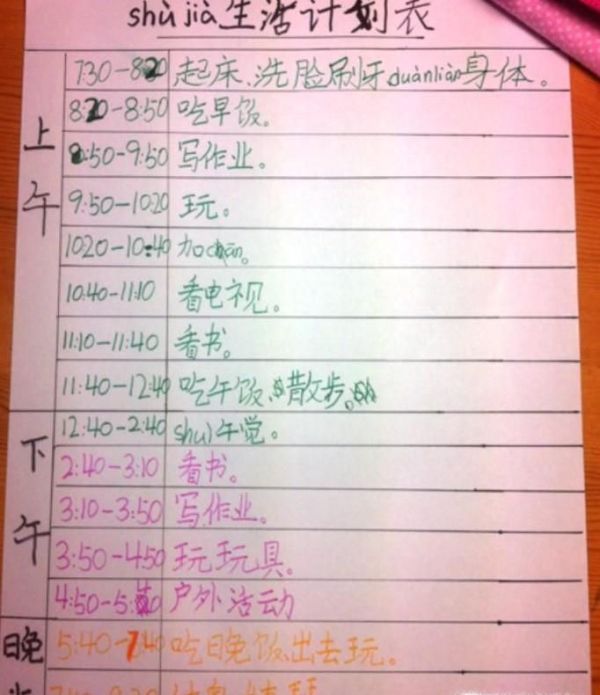 shǔ jià 生活计划表
上午
7:30-8:20 起床、洗脸刷牙duànliàn身体。
8:20-8:50 吃早饭。
8:50-9:50 写作业。
9:50-10:20 玩。
10:20-10:40 加
10:40-11:10 看电视。
11:10-11:40 看书。
11:40-12:40 吃午饭、散步。
下午
12:40-2:40 shuì午觉。
2:40-3:10 看书。
3:10-3:50 写作业。
3:50-4:50 玩玩具。
4:50-5: 户外活动
晚
5:40-7:40 吃晚饭、出去玩。